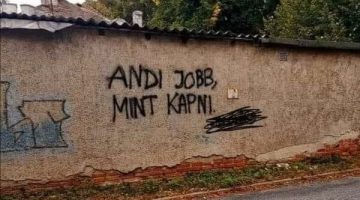 ANDI JOBB,
MINT KAPNI.